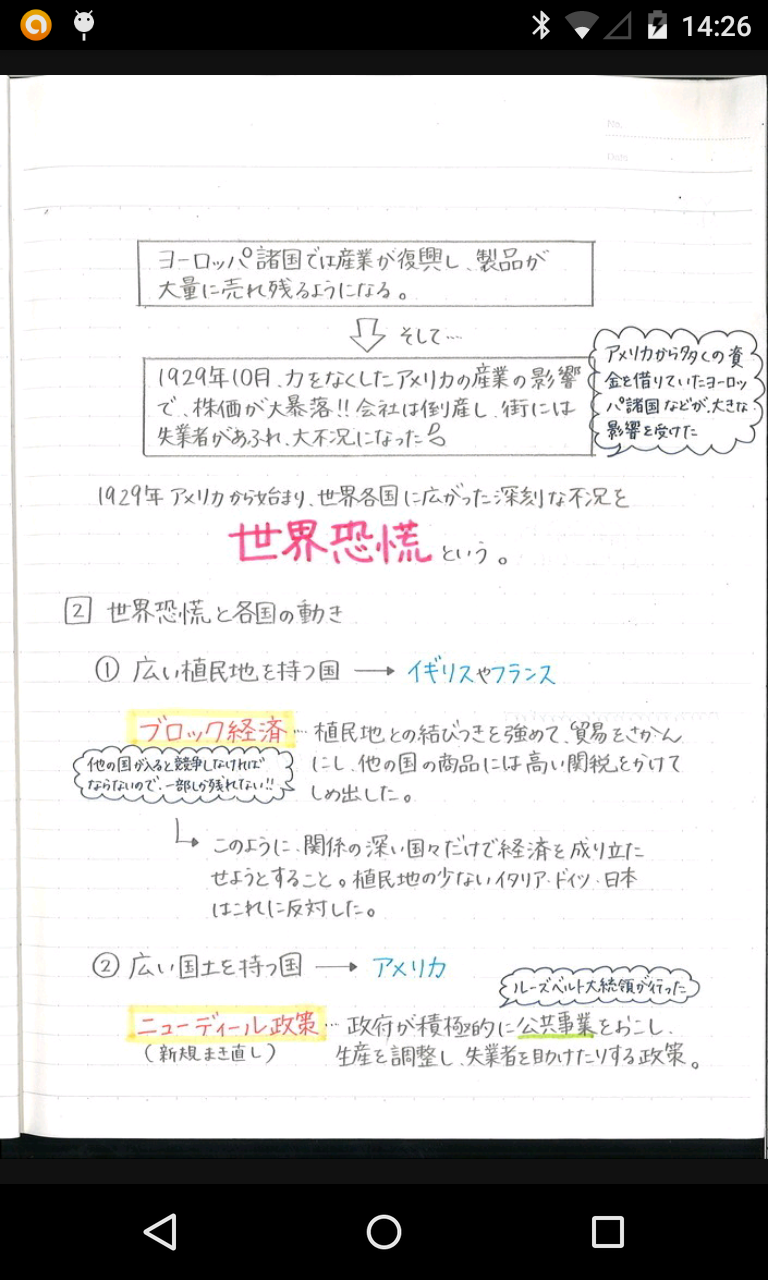 14:26
No.
Date
ヨーロッパ諸国では産業が復興し、製品が
大量に売れ残るようになる。
そして…
1929年10月、力をなくしたアメリカの産業の影響
で、株価が大暴落!!会社は倒産し、街には
失業者があふれ、大不況になった
アメリカから多くの資
金を借りていたヨーロッ
パ諸国などが、大きな
影響を受けた
1929年アメリカから始まり、世界各国に広がった深刻な不況を
世界恐慌という。
2 世界恐慌と各国の動き
① 広い植民地を持つ国 → イギリスやフランス
ブロック経済… 植民地との結びつきを強めて、貿易をさかん
にし、他の国の商品には高い関税をかけて
しめ出した。
他の国が入ると競争しなければ
ならないので、一部しか残れない!!
このように、関係の深い国々だけで経済を成り立た
せようとすること。植民地の少ないイタリア・ドイツ・日本
はこれに反対した。
② 広い国土を持つ国 → アメリカ
ルーズベルト大統領が行った
ニューディール政策… 政府が積極的に公共事業をおこし、
(新規まき直し) 生産を調整し、失業者を助けたりする政策。